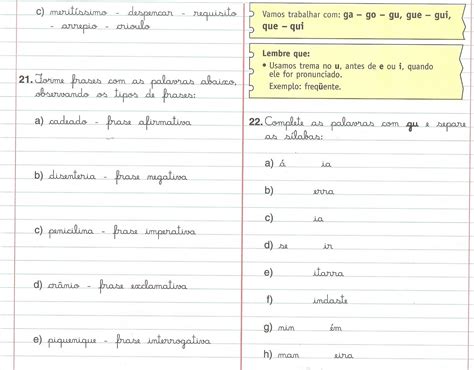 c) meritíssimo - despencar - requisito
- arrepio - crioulo
21. Forme frases com as palavras abaixo,
observando os tipos de frases:
a) cadeado - frase afirmativa
b) disenteria - frase negativa
c) penicilina - frase imperativa
d) crânio - frase exclamativa
e) piquenique - frase interrogativa
Vamos trabalhar com: ga - go - gu, gue - gui,
que - qui
Lembre que:
• Usamos trema no u, antes de e ou i, quando
ele for pronunciado.
Exemplo: freqüente.
22. Complete as palavras com gu e separe
as sílabas:
a) á ia
b) erra
c) ia
d) se ir
e) itarra
f) indaste
g) nin ém
h) man eira